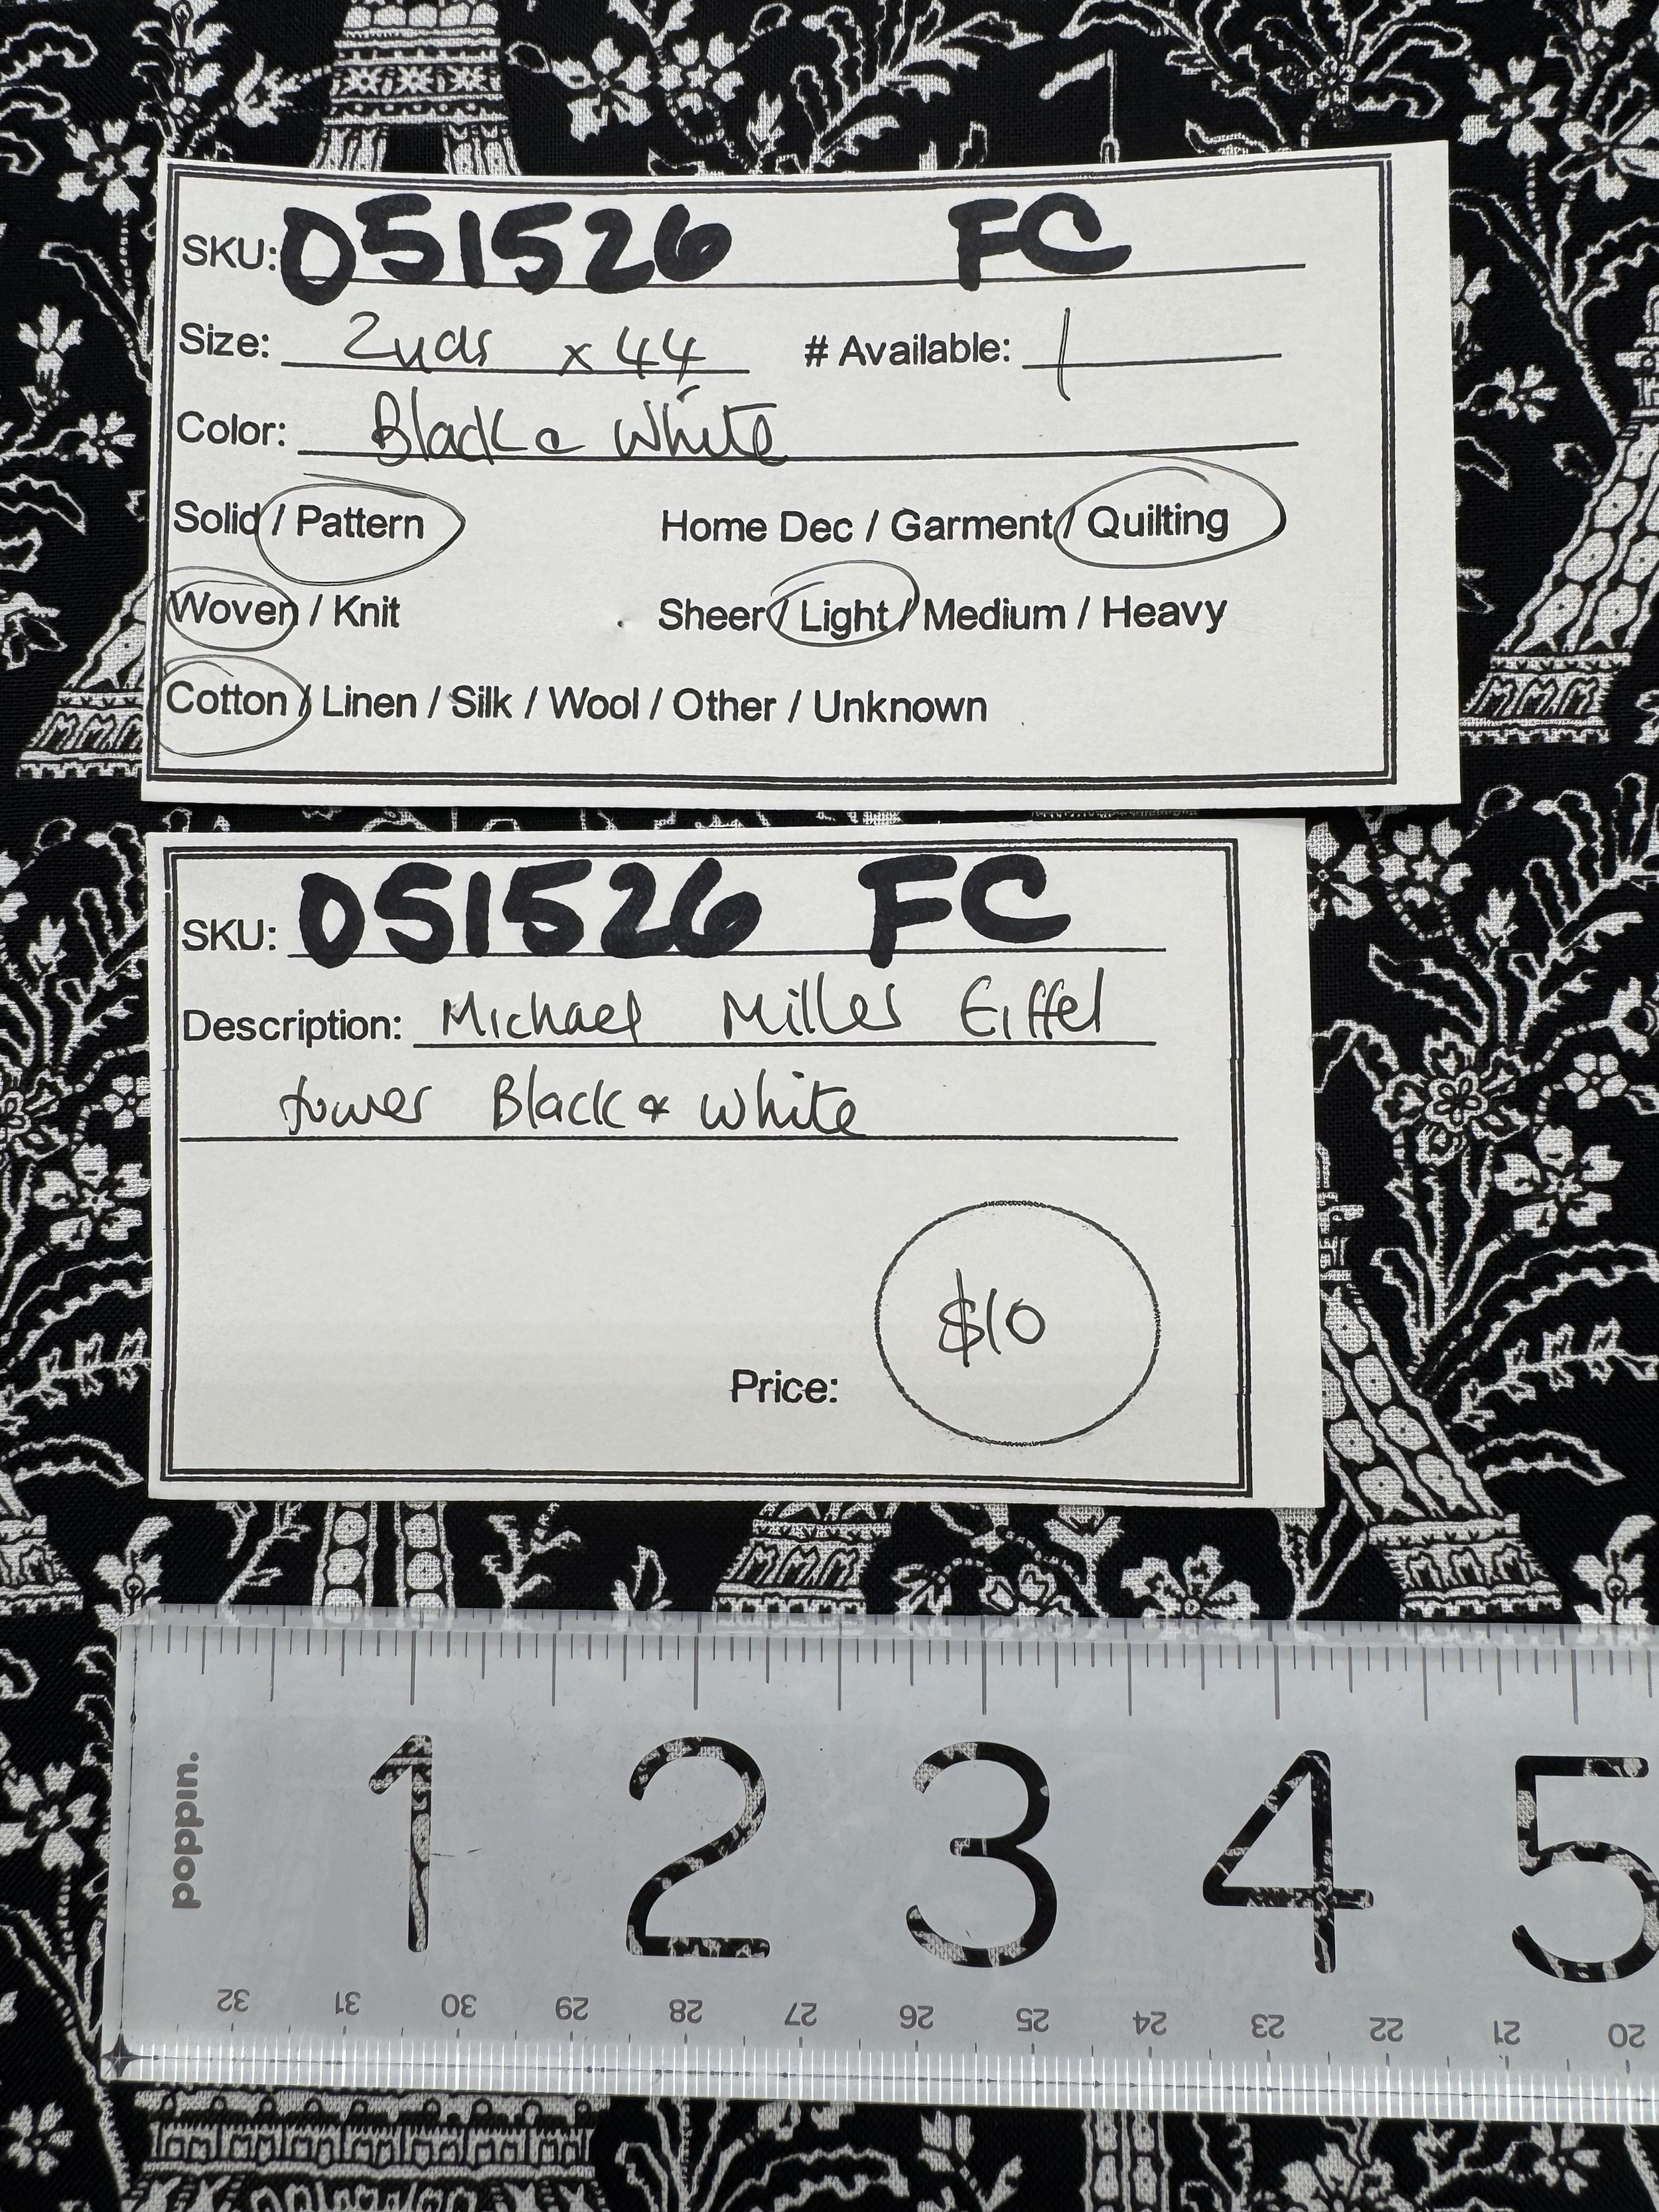 SKU: 051526 FC
Size: 2yds x 44 # Available: 1
Color: Black & White
Solid / Pattern Home Dec / Garment / Quilting
Woven / Knit Sheer / Light / Medium / Heavy
Cotton / Linen / Silk / Wool / Other / Unknown
SKU: 051526 FC
Description: Michael Miller Eiffel
tower Black & White
$10
Price:
poppin.
1 2 3 4 5
32 31 30 29 28 27 26 25 24 23 22 21 20